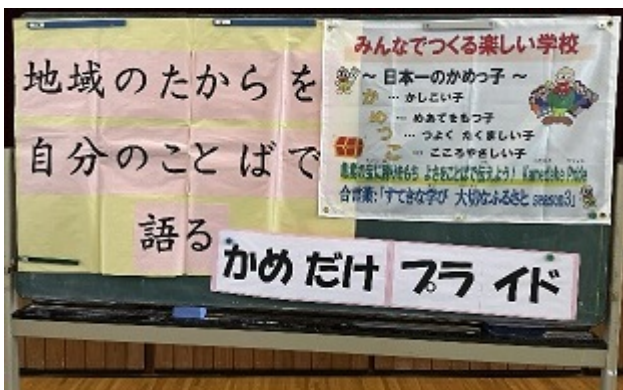 地域のたからを
自分のことばで
語る
かめだけ プライド
みんなでつくる楽しい学校
～ 日本一のかめっ子 ～
か … かしこい子
め … めあてをもつ子
っ … つよく たくましい子
こ … こころやさしい子
よさをことばで伝えよう! Kamedake Pride
合言葉:「すてきな学び 大切なふるさと season3」